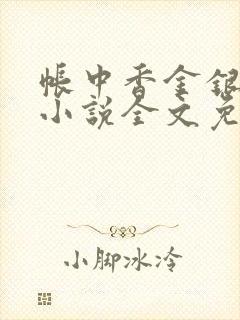 帳中香金銀
小說全文免
小脚冰冷